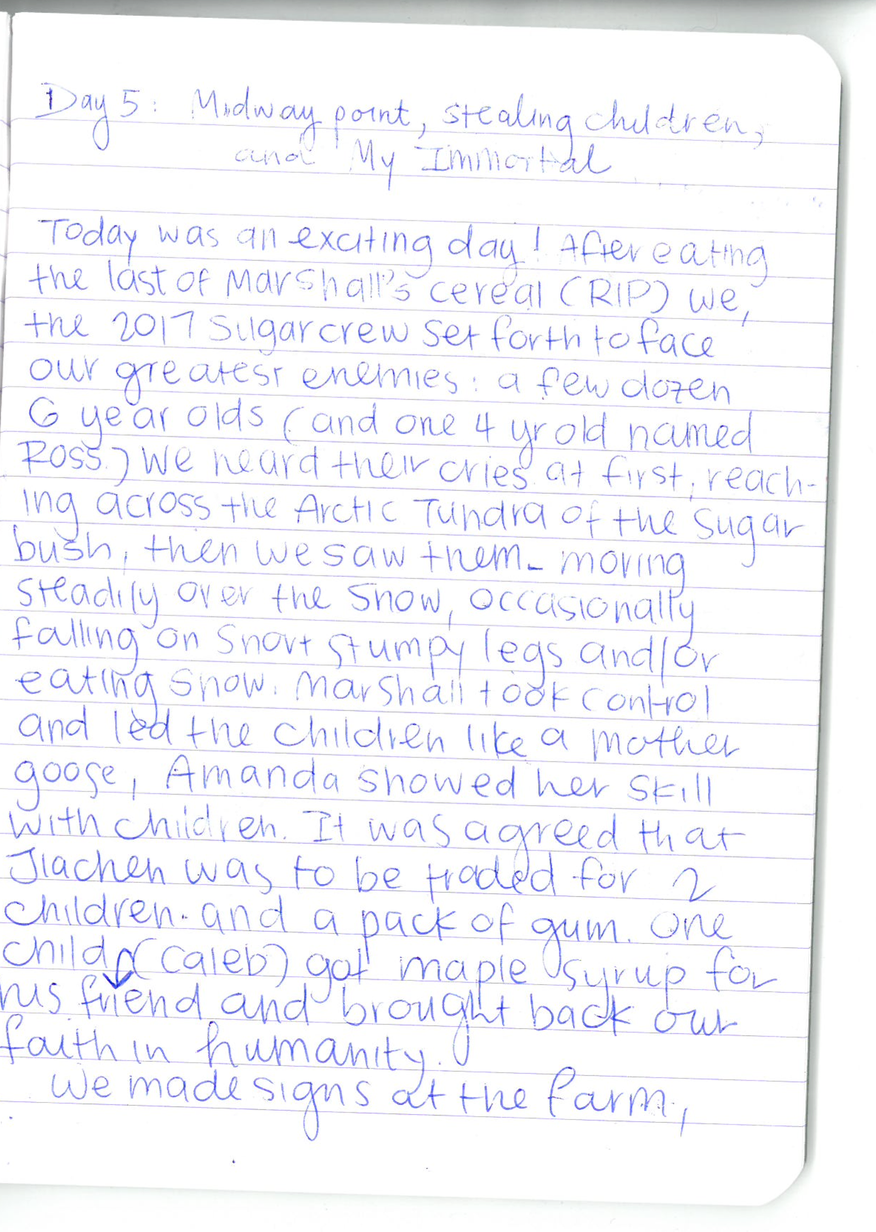 Day 5: Midway point, stealing children,
and My Immortal
Today was an exciting day! After eating
the last of Marshall's cereal (RIP) we,
the 2017 Sugarcrew set forth to face
our greatest enemies: a few dozen
6 year olds (and one 4 yr old named
Ross.) We heard their cries at first, reach-
ing across the Arctic Tundra of the sugar
bush, then we saw them - moving
steadily over the snow, occasionally
falling on short stumpy legs and/or
eating snow. Marshall took control
and led the children like a mother
goose, Amanda showed her skill
with children. It was agreed that
Jiachen was to be traded for 2
children. and a pack of gum. One
child (Caleb) got maple syrup for
his friend and brought back our
faith in humanity.
We made signs at the farm,